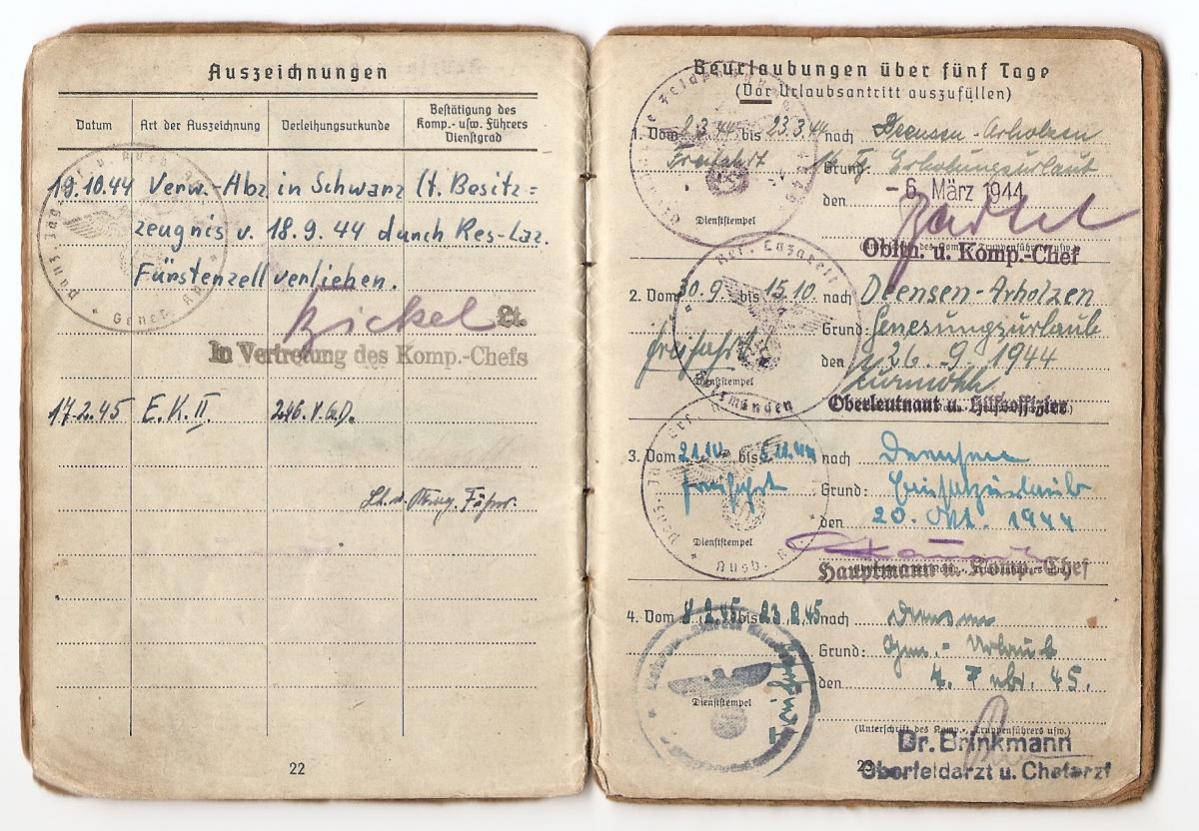 Auszeichnungen
Datum
Art der Auszeichnung
Verleihungsurkunde
Bestätigung des
Komp.- usw. Führers
Dienstgrad
19.10.44 Verw.-Abz. in Schwarz lt. Besitz=
zeugnis v. 18.9.44 durch Res-Laz.
Fürstenzell verliehen.
Bickel Lt.
In Vertretung des Komp.-Chefs
17.2.45 E.K.II. 246.V.G.D.
22
Beurlaubungen über fünf Tage
(Vor Urlaubsantritt auszufüllen)
1. Vom 2.3.44 bis 23.3.44 nach Deensen-Arholzen
Freifahrt Grund: Erholungsurlaub
den - 6. März 1944
Dienststempel
Obltn. u. Komp.-Chef
2. Vom 30.9. bis 15.10. nach Deensen-Arholzen
Freifahrt Grund: Genesungsurlaub
den 26.9.1944
Dienststempel
Oberleutnant u. Hilfsoffizier
3. Vom 21.10. bis nach Deensen
Freifahrt Grund: Einsatzurlaub
den 20. Okt. 1944
Dienststempel
Hauptmann u. Komp.-Chef
4. Vom 8.2.45 bis 23.2.45 nach Deensen
Grund: Gen.-Urlaub
den 7. Febr. 45.
Dienststempel
(Unterschrift des Komp.-, Truppenführers usw.)
Dr. Brinkmann
Oberfeldarzt u. Chefarzt
23